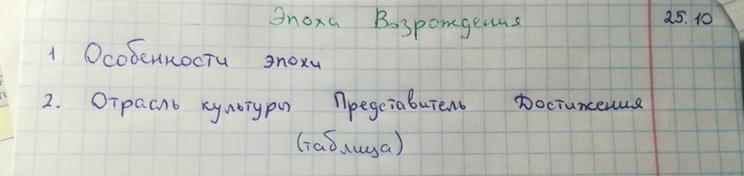 Эпоха Возрождения 25.10
1 Особенности эпохи
2. Отрасль культуры Представитель Достижения
(таблица)